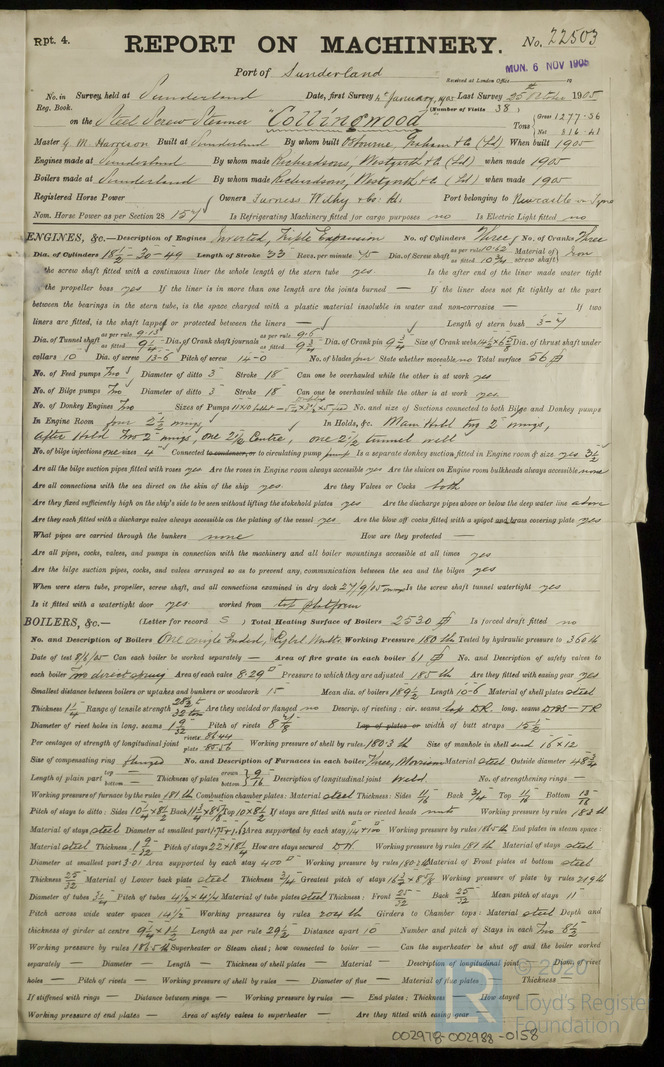 Rpt. 4.
REPORT ON MACHINERY.
No. 22503
Port of Sunderland
Received at London Office
MON. 6 NOV 1905
No. in Survey held at Sunderland Date, first Survey 4th January, 1905 Last Survey 25th 1905
Reg. Book.
(Number of Visits 38)
on the Steel Screw Steamer "Collingwood"
Tons Gross 1277.36
Net 516.41
Master G. M. Harrison Built at Sunderland By whom built Osbourne, Graham & Co (Ltd) When built 1905
Engines made at Sunderland By whom made Richardsons, Westgarth & Co (Ld) when made 1905
Boilers made at Sunderland By whom made Richardsons, Westgarth & Co (Ld) when made 1905
Registered Horse Power Owners Furness Withy & Co. Ld. Port belonging to Newcastle on Tyne
Nom. Horse Power as per Section 28 157 Is Refrigerating Machinery fitted for cargo purposes no Is Electric Light fitted no
ENGINES, &c.—Description of Engines Inverted, Triple Expansion No. of Cylinders Three No. of Cranks Three
Dia. of Cylinders 18½-30-49 Length of Stroke 33 Revs. per minute 75 Dia. of Screw shaft as per rule 10.62 as fitted 10¾ Material of screw shaft Iron
Is the screw shaft fitted with a continuous liner the whole length of the stern tube yes Is the after end of the liner made water tight
in the propeller boss yes If the liner is in more than one length are the joints burned — If the liner does not fit tightly at the part
between the bearings in the stern tube, is the space charged with a plastic material insoluble in water and non-corrosive — If two
liners are fitted, is the shaft lapped or protected between the liners — Length of stern bush 3-7
Dia. of Tunnel shaft as per rule 9.13 as fitted 9¼ Dia. of Crank shaft journals as per rule 9.6 as fitted 9¾ Dia. of Crank pin 9¾ Size of Crank webs Dia. of thrust shaft under
collars 10 Dia. of screw 13-6 Pitch of screw 14-0 No. of blades four State whether moveable no Total surface 56
No. of Feed pumps Two Diameter of ditto 3 Stroke 18 Can one be overhauled while the other is at work yes
No. of Bilge pumps Two Diameter of ditto 3 Stroke 18 Can one be overhauled while the other is at work yes
No. of Donkey Engines Two Sizes of Pumps No. and size of Suctions connected to both Bilge and Donkey pumps
In Engine Room four 2½ wings In Holds, &c. Main Hold two 2 wings,
After Hold Two 2 wings, one 2½ Centre, one 2½ tunnel well
No. of bilge injections one sizes 4 Connected to condenser, or to circulating pump pump Is a separate donkey suction fitted in Engine room & size yes 3½
Are all the bilge suction pipes fitted with roses yes Are the roses in Engine room always accessible yes Are the sluices on Engine room bulkheads always accessible none
Are all connections with the sea direct on the skin of the ship yes Are they Valves or Cocks both
Are they fixed sufficiently high on the ship's side to be seen without lifting the stokehold plates yes Are the discharge pipes above or below the deep water line above
Are they each fitted with a discharge valve always accessible on the plating of the vessel yes Are the blow off cocks fitted with a spigot and brass covering plate yes
What pipes are carried through the bunkers none How are they protected —
Are all pipes, cocks, valves, and pumps in connection with the machinery and all boiler mountings accessible at all times yes
Are the bilge suction pipes, cocks, and valves arranged so as to prevent any communication between the sea and the bilges yes
When were stern tube, propeller, screw shaft, and all connections examined in dry dock 27/9/05 Is the screw shaft tunnel watertight yes
Is it fitted with a watertight door yes worked from top platform
BOILERS, &c.— (Letter for record S) Total Heating Surface of Boilers 2530 Is forced draft fitted no
No. and Description of Boilers One single Ended, Cylcl. Multr. Working Pressure 180 lb Tested by hydraulic pressure to 360 lb
Date of test 8/6/05 Can each boiler be worked separately — Area of fire grate in each boiler 61 No. and Description of safety valves to
each boiler Two direct spring Area of each valve 8.29 Pressure to which they are adjusted 185 lb Are they fitted with easing gear yes
Smallest distance between boilers or uptakes and bunkers or woodwork 15 Mean dia. of boilers 189½ Length 10-6 Material of shell plates steel
Thickness 1¼ Range of tensile strength 28½ to 32 tons Are they welded or flanged no Descrip. of riveting: cir. seams lap DR long. seams DBS-TR
Diameter of rivet holes in long. seams 1 9/32 Pitch of rivets 8⅞ Lap of plates or width of butt straps 15½
Per centages of strength of longitudinal joint rivets 86.44 plate 85.56 Working pressure of shell by rules 180.3 lb Size of manhole in shell end 16 x 12
Size of compensating ring flanged No. and Description of Furnaces in each boiler Three, Morrison Material steel Outside diameter 48¾
Length of plain part top — bottom — Thickness of plates crown bottom 9/16 Description of longitudinal joint weld. No. of strengthening rings —
Working pressure of furnace by the rules 181 lb Combustion chamber plates: Material steel Thickness: Sides 11/16 Back ¾ Top 11/16 Bottom 13/16
Pitch of stays to ditto: Sides 10¼ x 8½ Back Top 10 x 8½ If stays are fitted with nuts or riveted heads nuts Working pressure by rules 183 lb
Material of stays steel Diameter at smallest part Area supported by each stay Working pressure by rules 185 lb End plates in steam space:
Material steel Thickness 1 9/32 Pitch of stays 22 x 18¼ How are stays secured DN Working pressure by rules 181 lb Material of stays steel
Diameter at smallest part 3.01 Area supported by each stay 400 Working pressure by rules 180.2 lb Material of Front plates at bottom steel
Thickness 25/32 Material of Lower back plate steel Thickness ¾ Greatest pitch of stays Working pressure of plate by rules 209 lb
Diameter of tubes 3¼ Pitch of tubes 4½ x 4¼ Material of tube plates steel Thickness: Front 25/32 Back 25/32 Mean pitch of stays 11
Pitch across wide water spaces 14½ Working pressures by rules 204 lb Girders to Chamber tops: Material steel Depth and
thickness of girder at centre 9¼ x 1½ Length as per rule 29½ Distance apart 10 Number and pitch of Stays in each Two 8½
Working pressure by rules 186.5 lb Superheater or Steam chest; how connected to boiler — Can the superheater be shut off and the boiler worked
separately — Diameter — Length — Thickness of shell plates — Material — Description of longitudinal joint — Diam. of rivet
holes — Pitch of rivets — Working pressure of shell by rules — Diameter of flue — Material of flue plates Thickness —
If stiffened with rings — Distance between rings — Working pressure by rules — End plates: Thickness How stayed
Working pressure of end plates — Area of safety valves to superheater — Are they fitted with easing gear
© 2020
Lloyd's Register
Foundation
002978-002988-0158